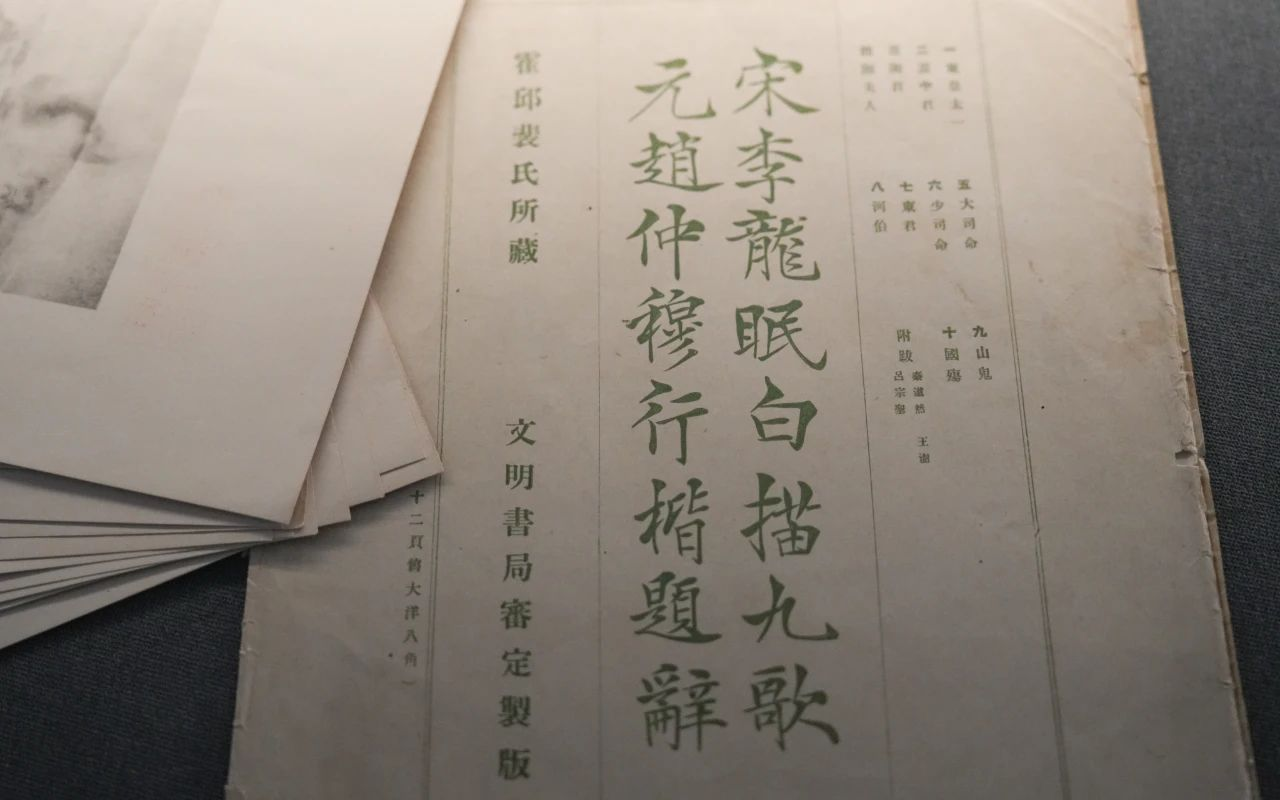 一東皇太一
二雲中君
三湘君
四湘夫人
五大司命
六少司命
七東君
八河伯
九山鬼
十國殤
附跋
秦道然 王澍
呂宗
宋李龍眠白描九歌
元趙仲穆行楷題辭
霍邱裴氏所藏
文明書局審定製版
十二頁價大洋八角